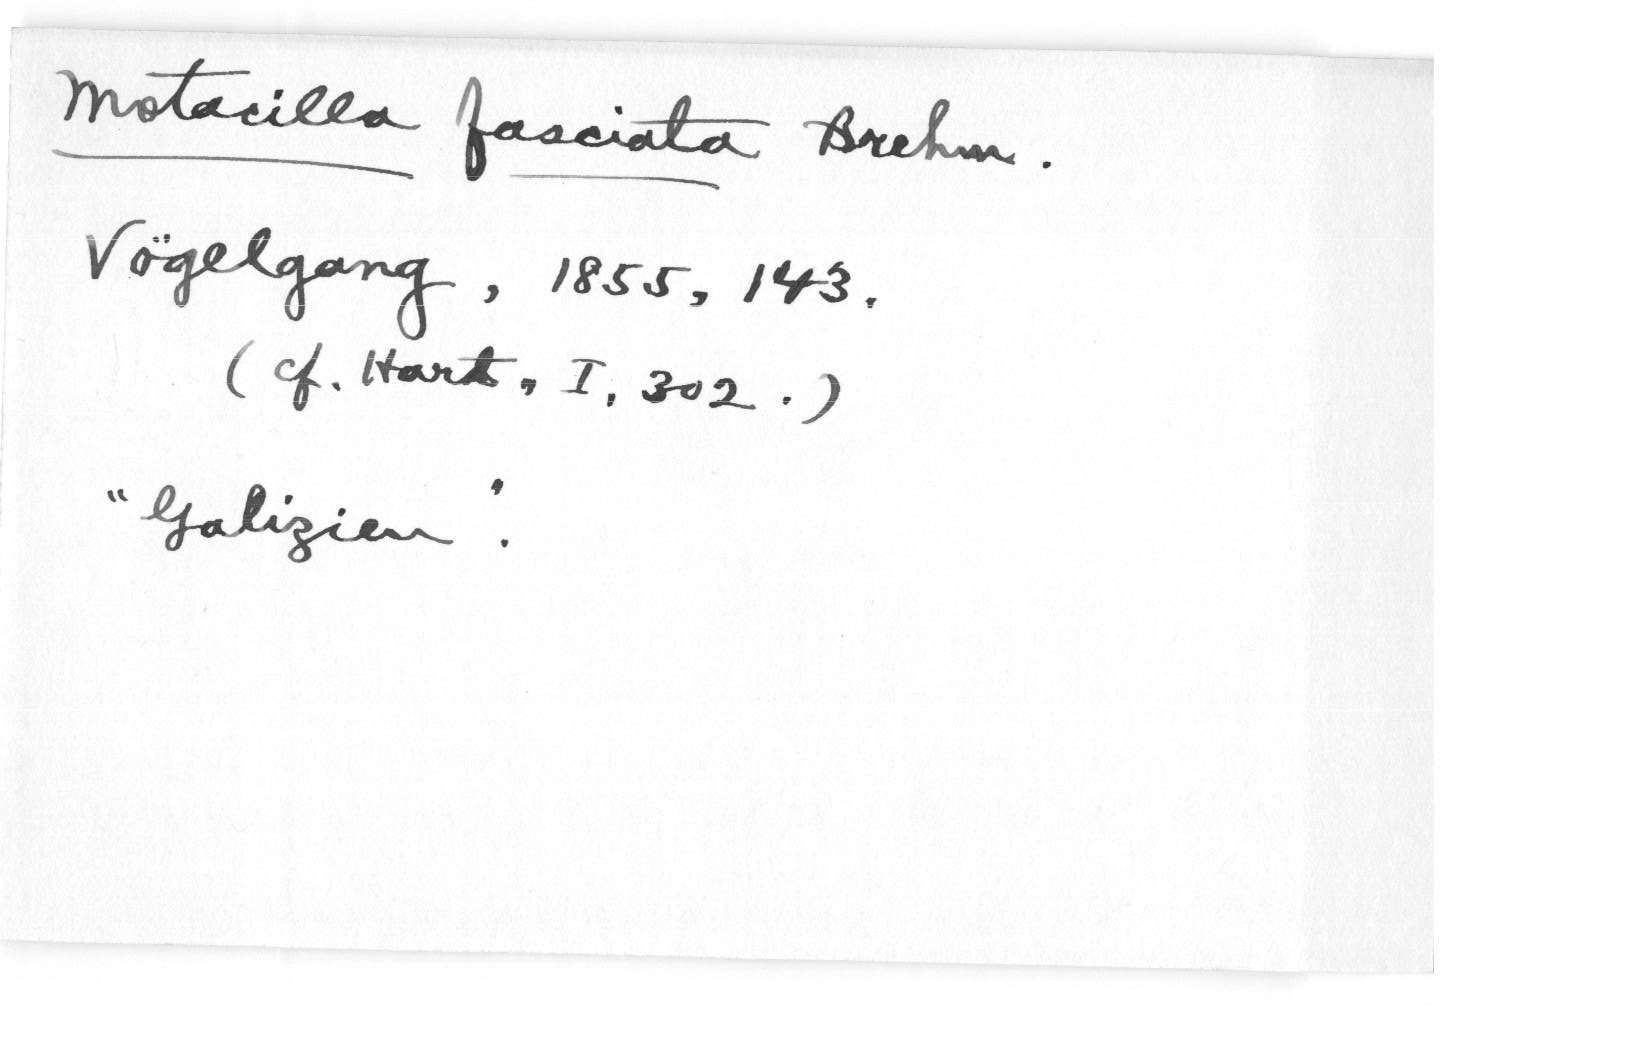 Motacilla fasciata Brehm.
Vögelgang, 1855, 143.
(cf. Hart, I, 302.)
"Galizien".